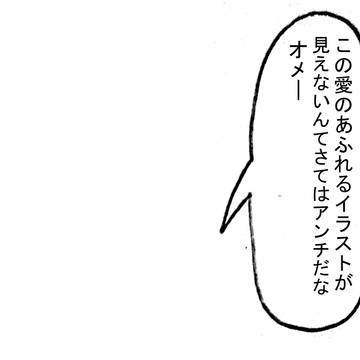 この愛のあふれるイラストが
見えないんてさてはアンチだな
オメー